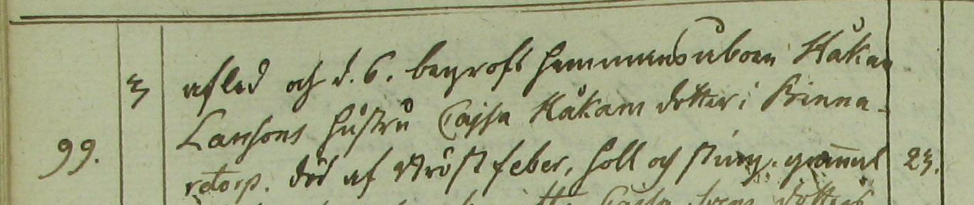 3 afled och d. 6. begrofs hemmansåboen Håkan
Larssons hustru Cajsa Håkans dotter i Binna-
99. retorp. död af Bröstfeber, håll och styng. gammal 23.